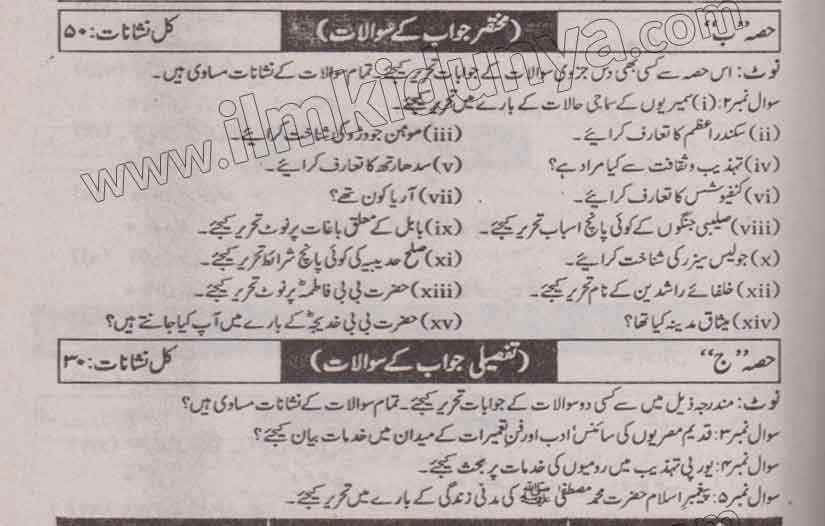 حصہ "ب" (مختصر جواب کے سوالات) کل نشانات: ۵۰
نوٹ: اس حصہ سے کسی بھی دس جزوی سوالات کے جوابات تحریر کیجئے۔ تمام سوالات کے نشانات مساوی ہیں۔
سوال نمبر۲: (i) سمیریوں کے سماجی حالات کے بارے میں تحریر کیجئے۔
(ii) سکندر اعظم کا تعارف کرائیے۔ (iii) موہن جودڑو کی شناخت کرائیے۔
(iv) تہذیب و ثقافت سے کیا مراد ہے؟ (v) سدھارتھ کا تعارف کرائیے۔
(vi) کنفیوشس کا تعارف کرائیے۔ (vii) آریا کون تھے؟
(viii) صلیبی جنگوں کے کوئی پانچ اسباب تحریر کیجئے۔ (ix) بابل کے معلق باغات پر نوٹ تحریر کیجئے۔
(x) جولیس سیزر کی شناخت کرائیے۔ (xi) صلح حدیبیہ کی کوئی پانچ شرائط تحریر کیجئے۔
(xii) خلفائے راشدین کے نام تحریر کیجئے۔ (xiii) حضرت بی بی فاطمہؓ پر نوٹ تحریر کیجئے۔
(xiv) میثاق مدینہ کیا تھا؟ (xv) حضرت بی بی خدیجہؓ کے بارے میں آپ کیا جانتے ہیں؟
حصہ "ج" (تفصیلی جواب کے سوالات) کل نشانات: ۳۰
نوٹ: مندرجہ ذیل میں سے کسی دو سوالات کے جوابات تحریر کیجئے۔ تمام سوالات کے نشانات مساوی ہیں؟
سوال نمبر۳: قدیم مصریوں کی سائنس، ادب اور فنِ تعمیرات کے میدان میں خدمات بیان کیجئے؟
سوال نمبر۴: یورپی تہذیب میں رومیوں کی خدمات پر بحث کیجئے۔
سوال نمبر۵: پیغمبر اسلام حضرت محمد مصطفیٰ ﷺ کی مدنی زندگی کے بارے میں تحریر کیجئے۔
www.ilmkidunya.com